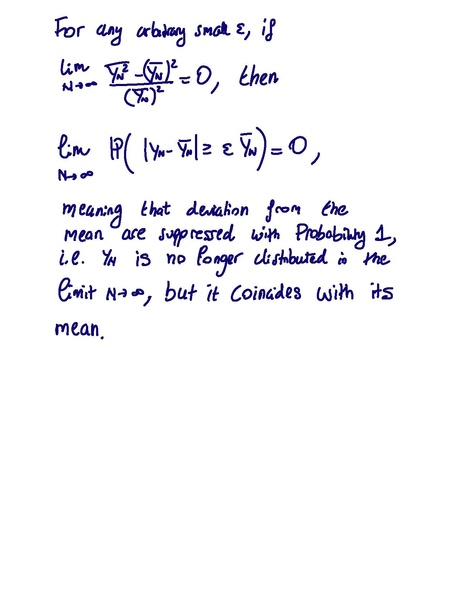 For any arbitrary small ε, if
lim N→∞ (\overline{Y_N^2} - (\overline{Y_N})^2) / (\overline{Y_N})^2 = 0, then
lim N→∞ ℙ( |Y_N - \overline{Y_N}| ≥ ε \overline{Y_N} ) = 0,
meaning that deviation from the
mean are suppressed with Probability 1,
i.e. Y_N is no longer distributed in the
limit N→∞, but it coincides with its
mean.